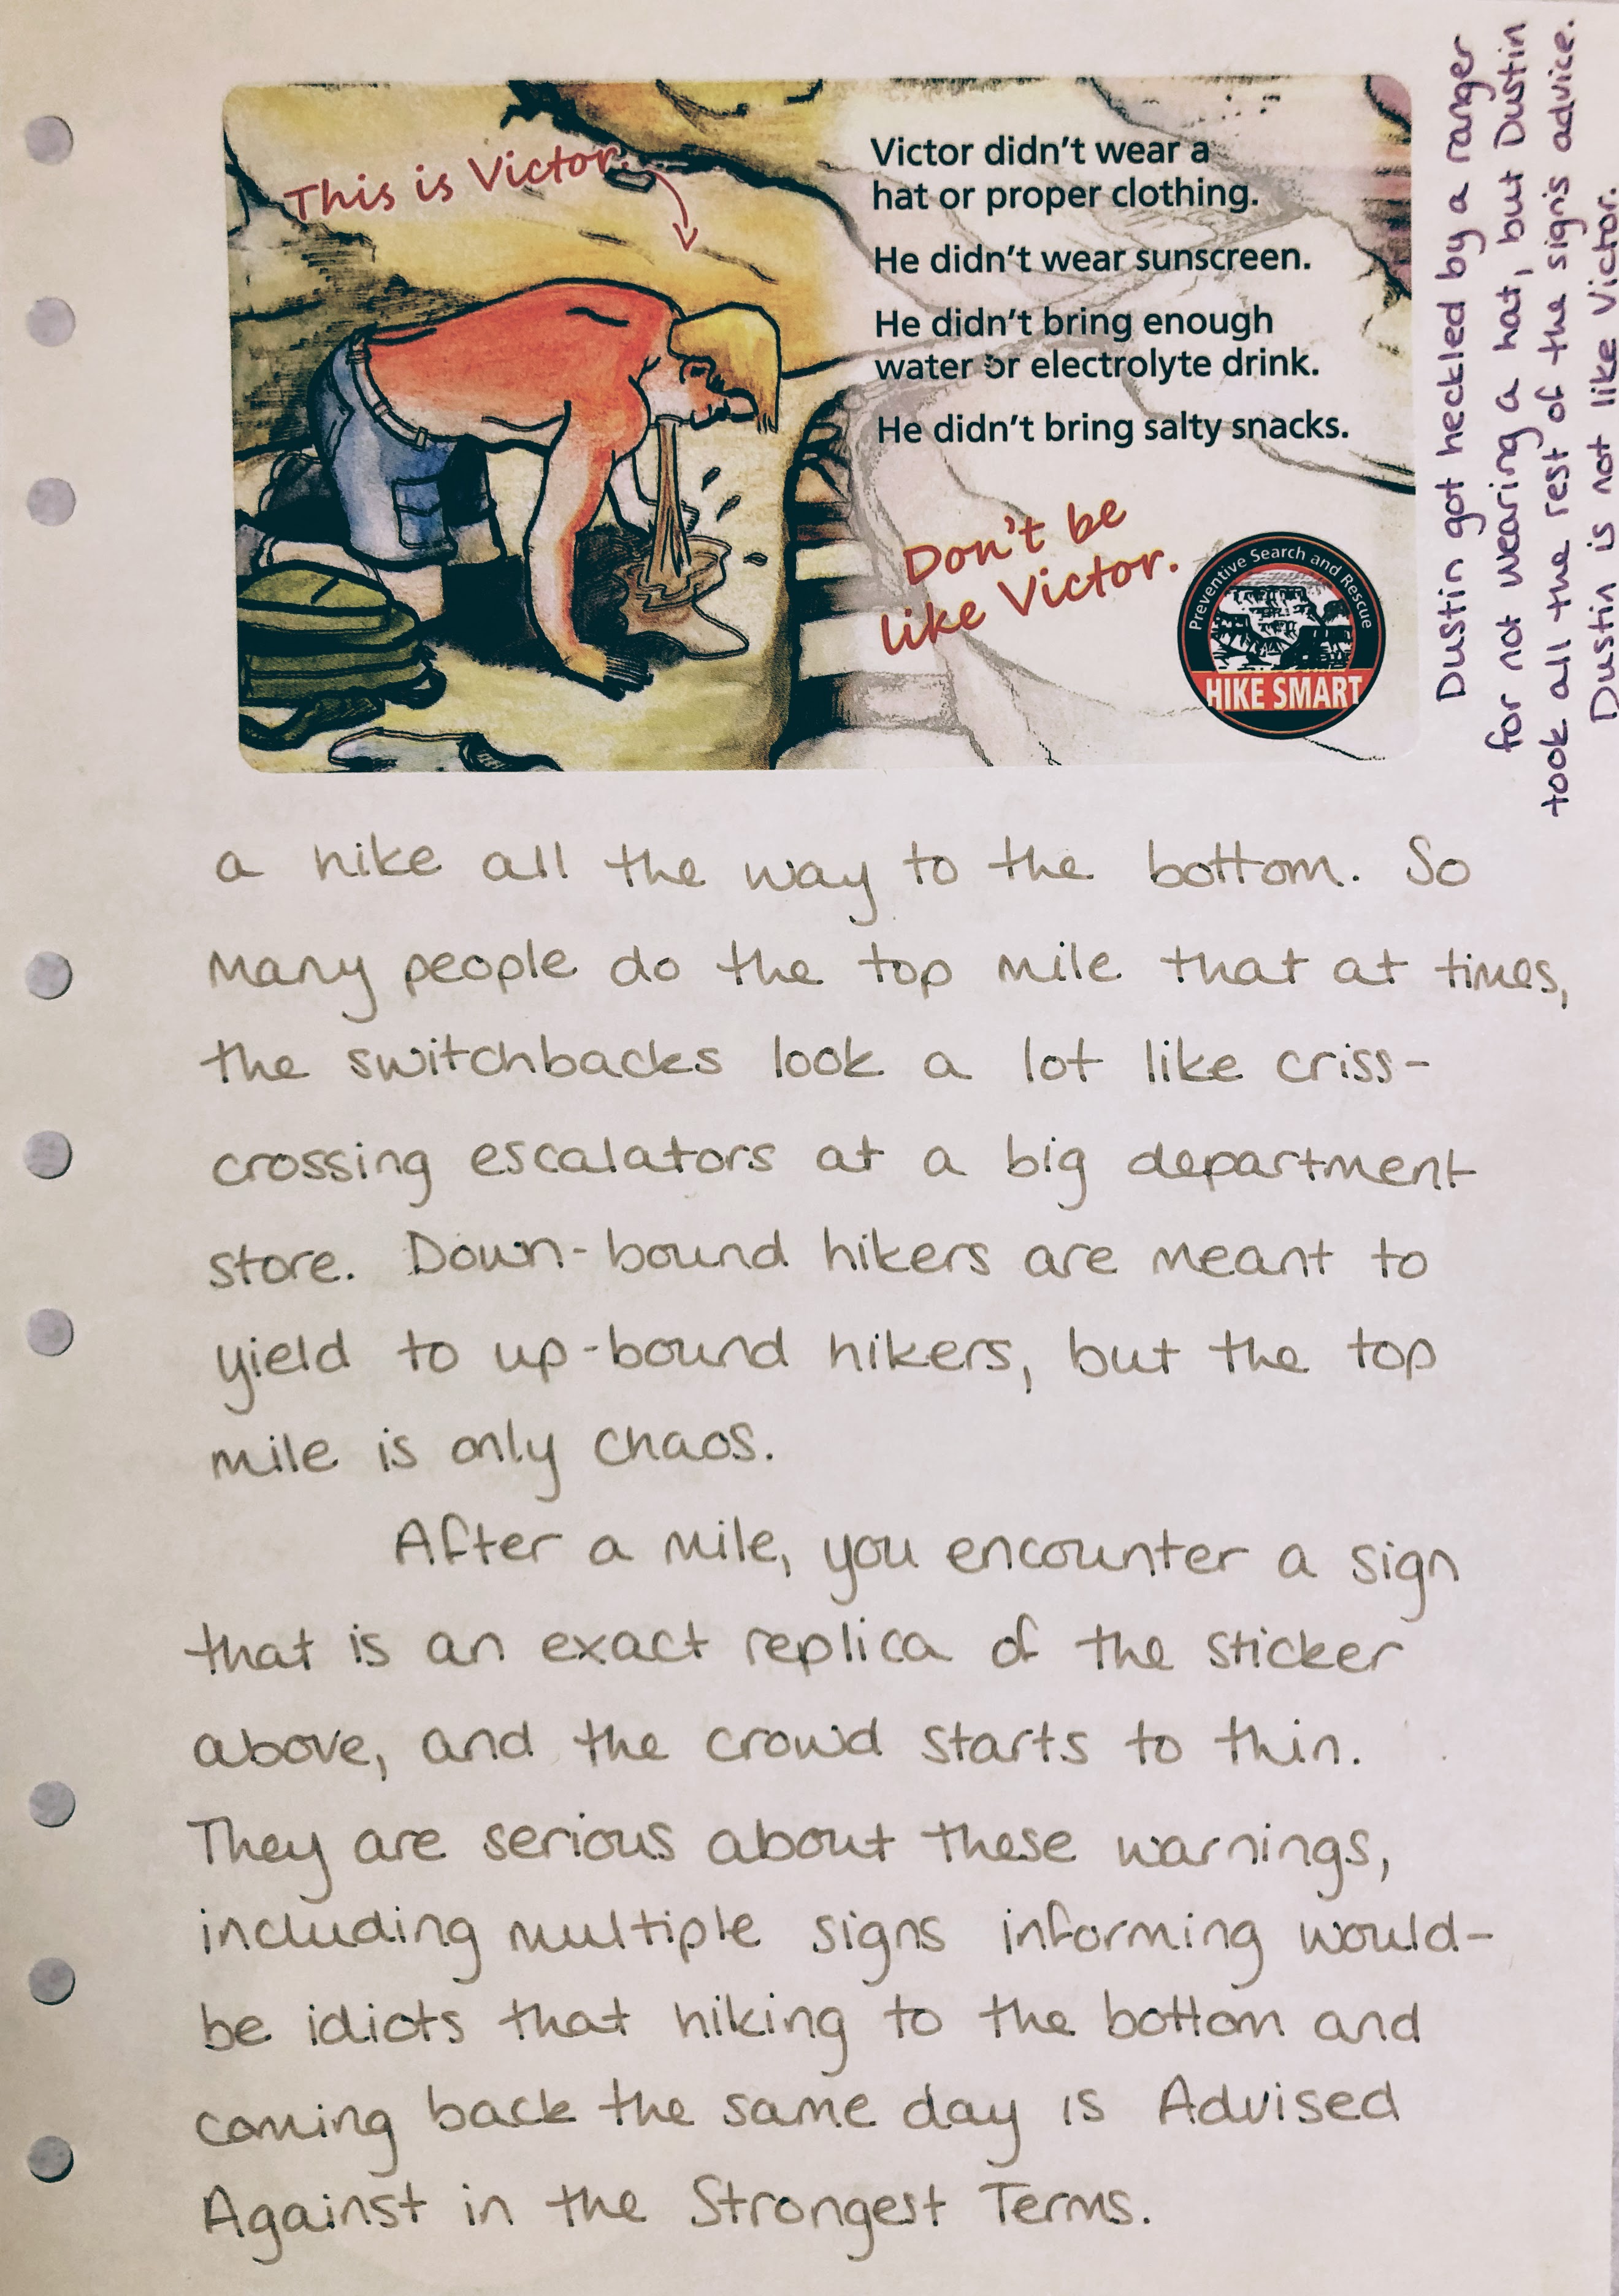 This is Victor.
Victor didn't wear a
hat or proper clothing.
He didn't wear sunscreen.
He didn't bring enough
water or electrolyte drink.
He didn't bring salty snacks.
Don't be
like Victor.
Preventive Search and Rescue
HIKE SMART
Dustin got heckled by a ranger
for not wearing a hat, but Dustin
took all the rest of the sign's advice.
Dustin is not like Victor.
a hike all the way to the bottom. So
many people do the top mile that at times,
the switchbacks look a lot like criss-
crossing escalators at a big department
store. Down-bound hikers are meant to
yield to up-bound hikers, but the top
mile is only chaos.
After a mile, you encounter a sign
that is an exact replica of the sticker
above, and the crowd starts to thin.
They are serious about these warnings,
including multiple signs informing would-
be idiots that hiking to the bottom and
coming back the same day is Advised
Against in the Strongest Terms.